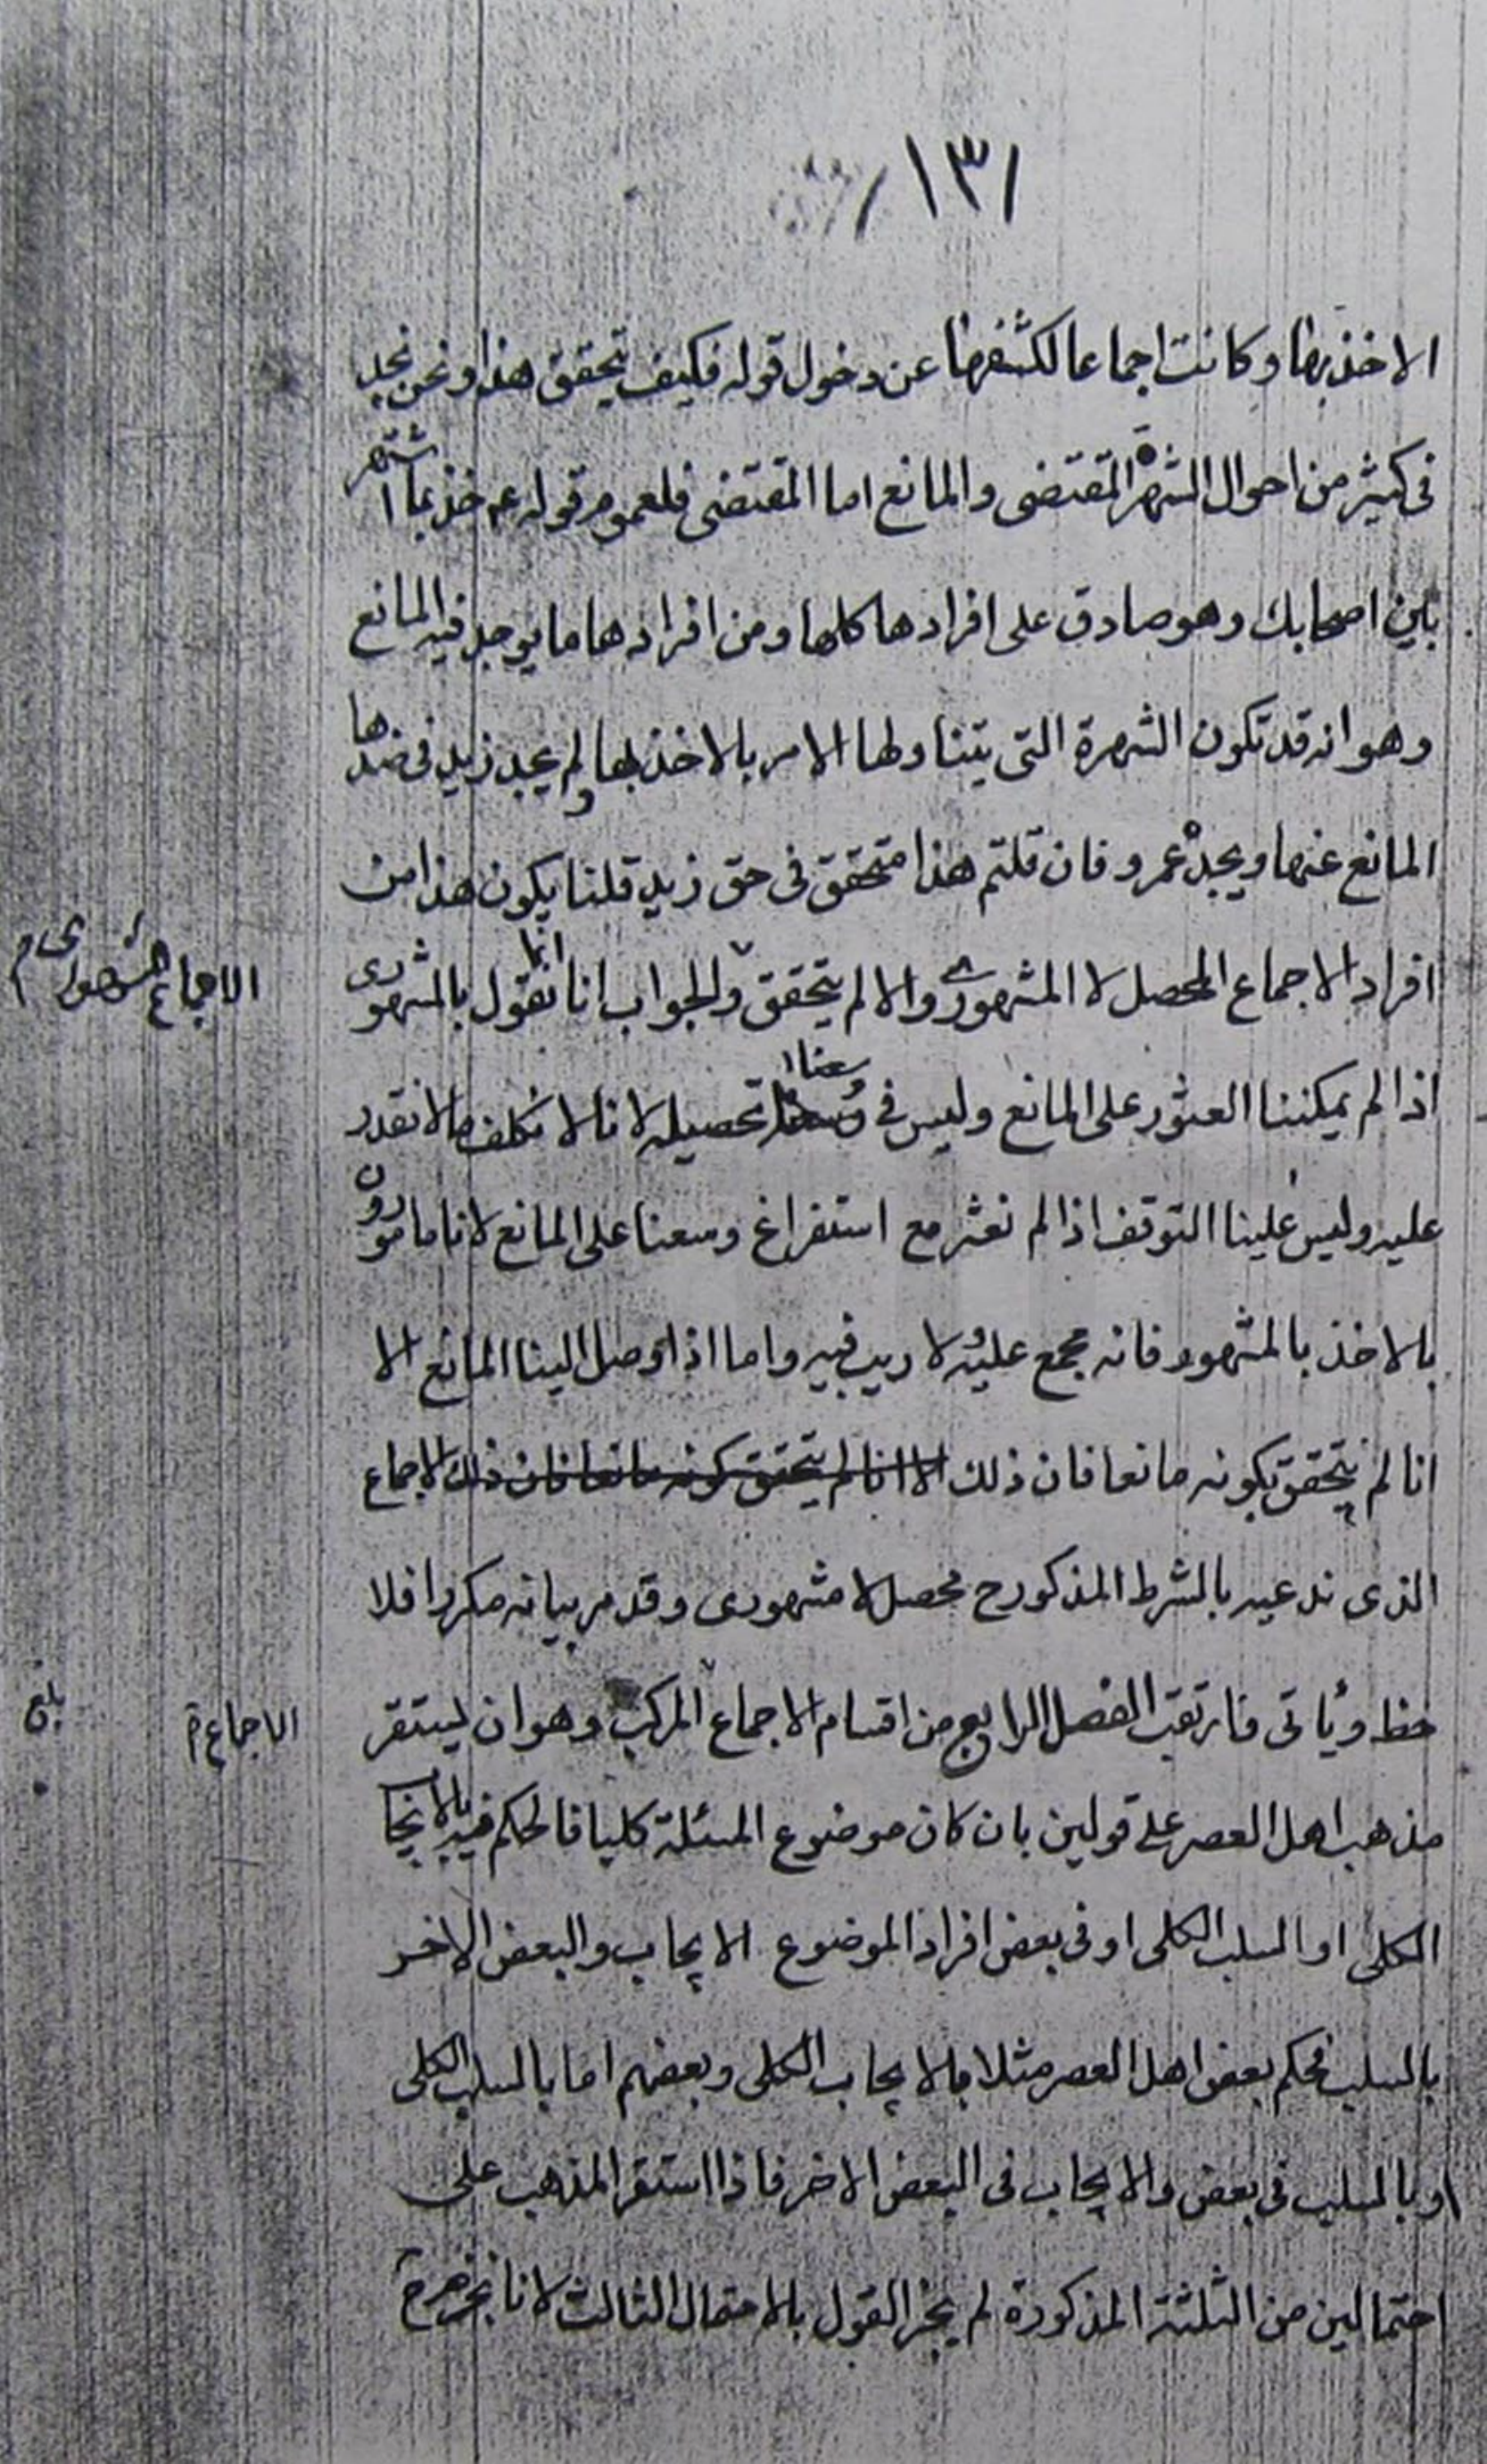 ١٣١
الاخذ بها وكانت اجماعا لكشفها عن دخول قوله فكيف يتحقق هذا ونحن نجد
فى كثير من احوال الشهرة المقتضى والمانع اما المقتضى فلعموم قوله ع خذ بما اشتهر
بين اصحابك وهو صادق على افرادها كلها ومن افرادها ما يوجد فيه المانع
وهو انه قد تكون الشهرة التى يتناولها الامر بالاخذ بها ولم يجد زيد فى ضدها
المانع عنها ويجده عمرو فان قلتم هذا متحقق فى حق زيد قلنا يكون هذا من
افراد الاجماع المحصل لا المشهورى والا لم يتحقق والجواب انا انما نقول بالمشهورى
اذا لم يمكننا العثور على المانع وليس فى وسعنا تحصيله لانا لا نكلف ما لا نقدر
عليه وليس علينا التوقف اذا لم نعثر مع استفراغ وسعنا على المانع لانا مامورون
بالاخذ بالمشهور فانه مجمع عليه لا ريب فيه واما اذا وصل الينا المانع الا
انا لم يتحقق كونه مانعا فان ذلك الا انا لم يتحقق كونه مانعا فان ذلك الاجماع
الذى ندعيه بالشرط المذكور ح محصل لا مشهورى وقد مر بيانه مكررا فلا
حظ وياتى فارتقب الفصل الرابع من اقسام الاجماع المركب وهو ان يستقر
مذهب اهل العصر على قولين بان كان موضوع المسئلة كليا فالحكم فيه بالايجا
الكلى او السلب الكلى او فى بعض افراد الموضوع الايجاب والبعض الاخر
بالسلب فحكم بعض اهل العصر مثلا بالايجاب الكلى وبعضهم اما بالسلب الكلى
او بالسلب فى بعض والايجاب فى البعض الاخر فاذا استقر المذهب على
احتمالين من الثلثة المذكورة لم يجز القول بالاحتمال الثالث لانا نجزم
الاجماع المشهورى
الاجماع
بلغ